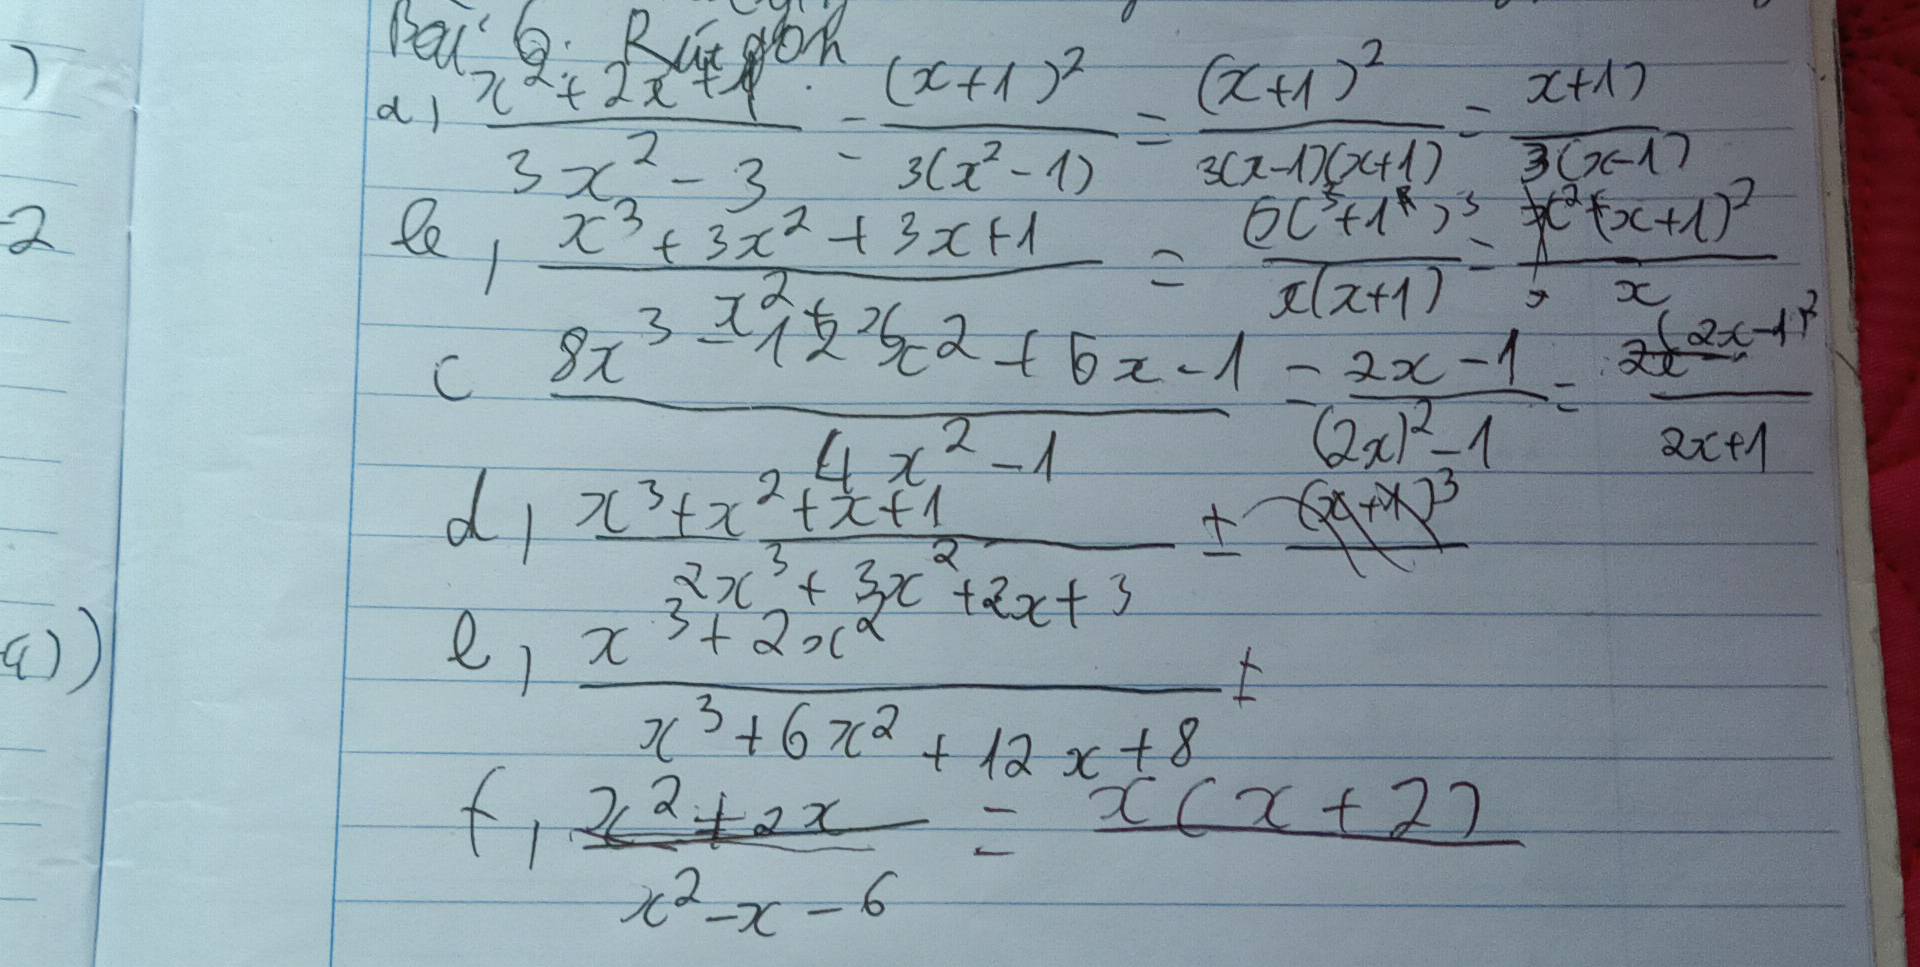 Bài 6: Rút gọn
a) \frac{x^2+2x+1}{3x^2-3} = \frac{(x+1)^2}{3(x^2-1)} = \frac{(x+1)^2}{3(x-1)(x+1)} = \frac{x+1)}{3(x-1)}
b, \frac{x^3+3x^2+3x+1}{x^2+x} = \frac{(x+1)^3}{x(x+1)} = \frac{(x+1)^2}{x}
c \frac{8x^3-12x^2+6x-1}{4x^2-1} = \frac{2x-1}{(2x)^2-1} = \frac{(2x-1)^2}{2x+1}
d, \frac{x^3+x^2+x+1}{2x^3+3x^2+2x+3} =
e, \frac{x^3+2x^2}{x^3+6x^2+12x+8} =
f, \frac{x^2+2x}{x^2-x-6} = \frac{x(x+2)}{}
-2